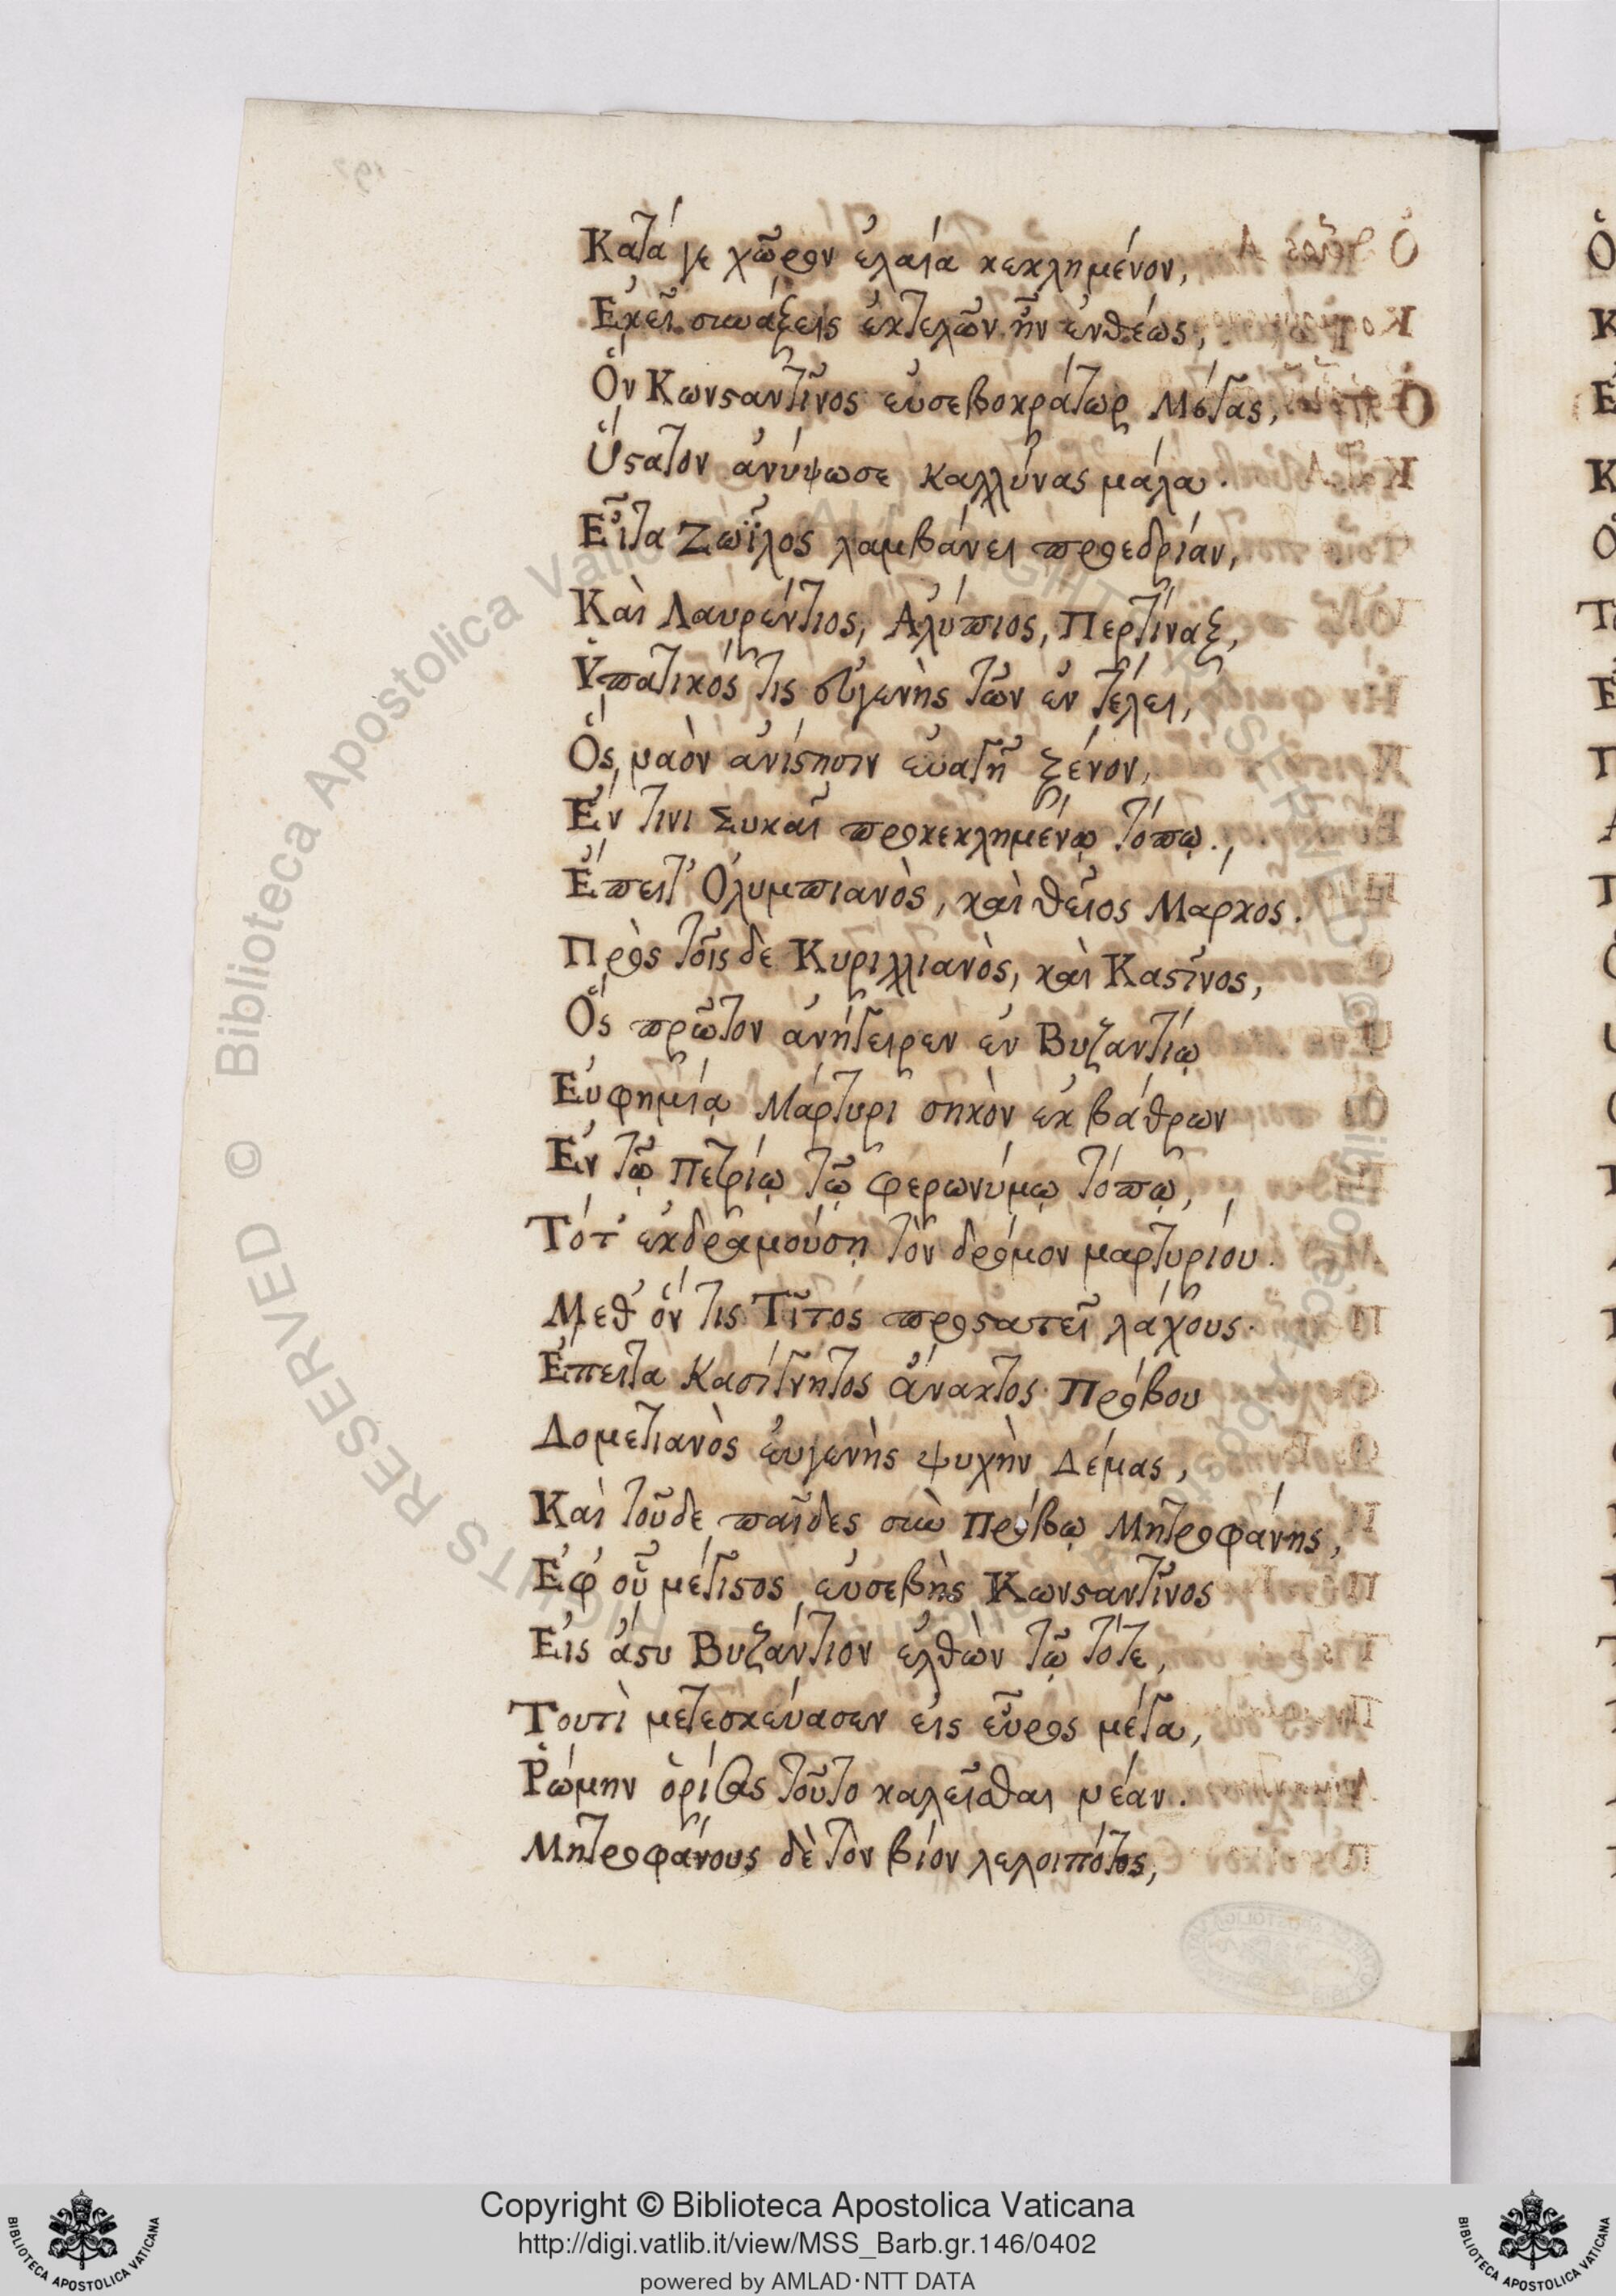 Κατά γε χῶρον ἐλαία κεκλημένον,
Ἐκεῖ συνάξεις ἐκτελῶν ἦν ἐνθέως,
Ὃν Κωνσαντῖνος εὐσεβοκράτωρ Μέγας,
Ὕσατον ἀνύψωσε καλλύνας μάλα.
Εἶτα Ζωΐλος λαμβάνει προεδρίαν,
Καὶ Λαυρέντιος, Ἀλύπιος, Περτίναξ,
Ὑπατικός τις εὐγενὴς τῶν ἐν τέλει,
Ὅς ναὸν ἀνίστησιν εὐαγῆ ξένον,
Ἔν τινι Συκαῖ προκεκλημένῳ τόπῳ.
Ἔπειτ' Ὀλυμπιανὸς, καὶ θεῖος Μάρκος.
Πρὸς τοῖσδε Κυριλλιανὸς, καὶ Καστῖνος,
Ὅς πρῶτον ἀνήγειρεν ἐν Βυζαντίῳ
Εὐφημίᾳ Μάρτυρι σηκὸν ἐκ βάθρων
Ἐν τῷ Πετρίῳ τῷ φερωνύμῳ τόπῳ,
Τότ' ἐκδραμούσῃ τὸν δρόμον μαρτυρίου.
Μεθ' ὅν τις Τῖτος προστατεῖ λάχους.
Ἔπειτα Κασίγνητος ἄνακτος Πρόβου
Δομετιανὸς εὐγενὴς ψυχὴν Δέμας,
Καὶ τοῦδε παῖδες σὺν Πρόβῳ Μητροφάνης,
Ἐφ' οὗ μέγιστος εὐσεβὴς Κωνσταντῖνος
Εἰς ἄστυ Βυζάντιον ἐλθὼν τῷ τότε,
Τουτὶ μετεσκεύασεν εἰς εὖρος μέγα,
Ῥώμην ὁρίσας τοῦτο καλεῖσθαι νέαν.
Μητροφάνους δὲ τὸν βίον λελοιπότος,
Copyright © Biblioteca Apostolica Vaticana
http://digi.vatlib.it/view/MSS_Barb.gr.146/0402
powered by AMLAD·NTT DATA
BIBLIOTECA APOSTOLICA VATICANA
BIBLIOTECA APOSTOLICA VATICANA